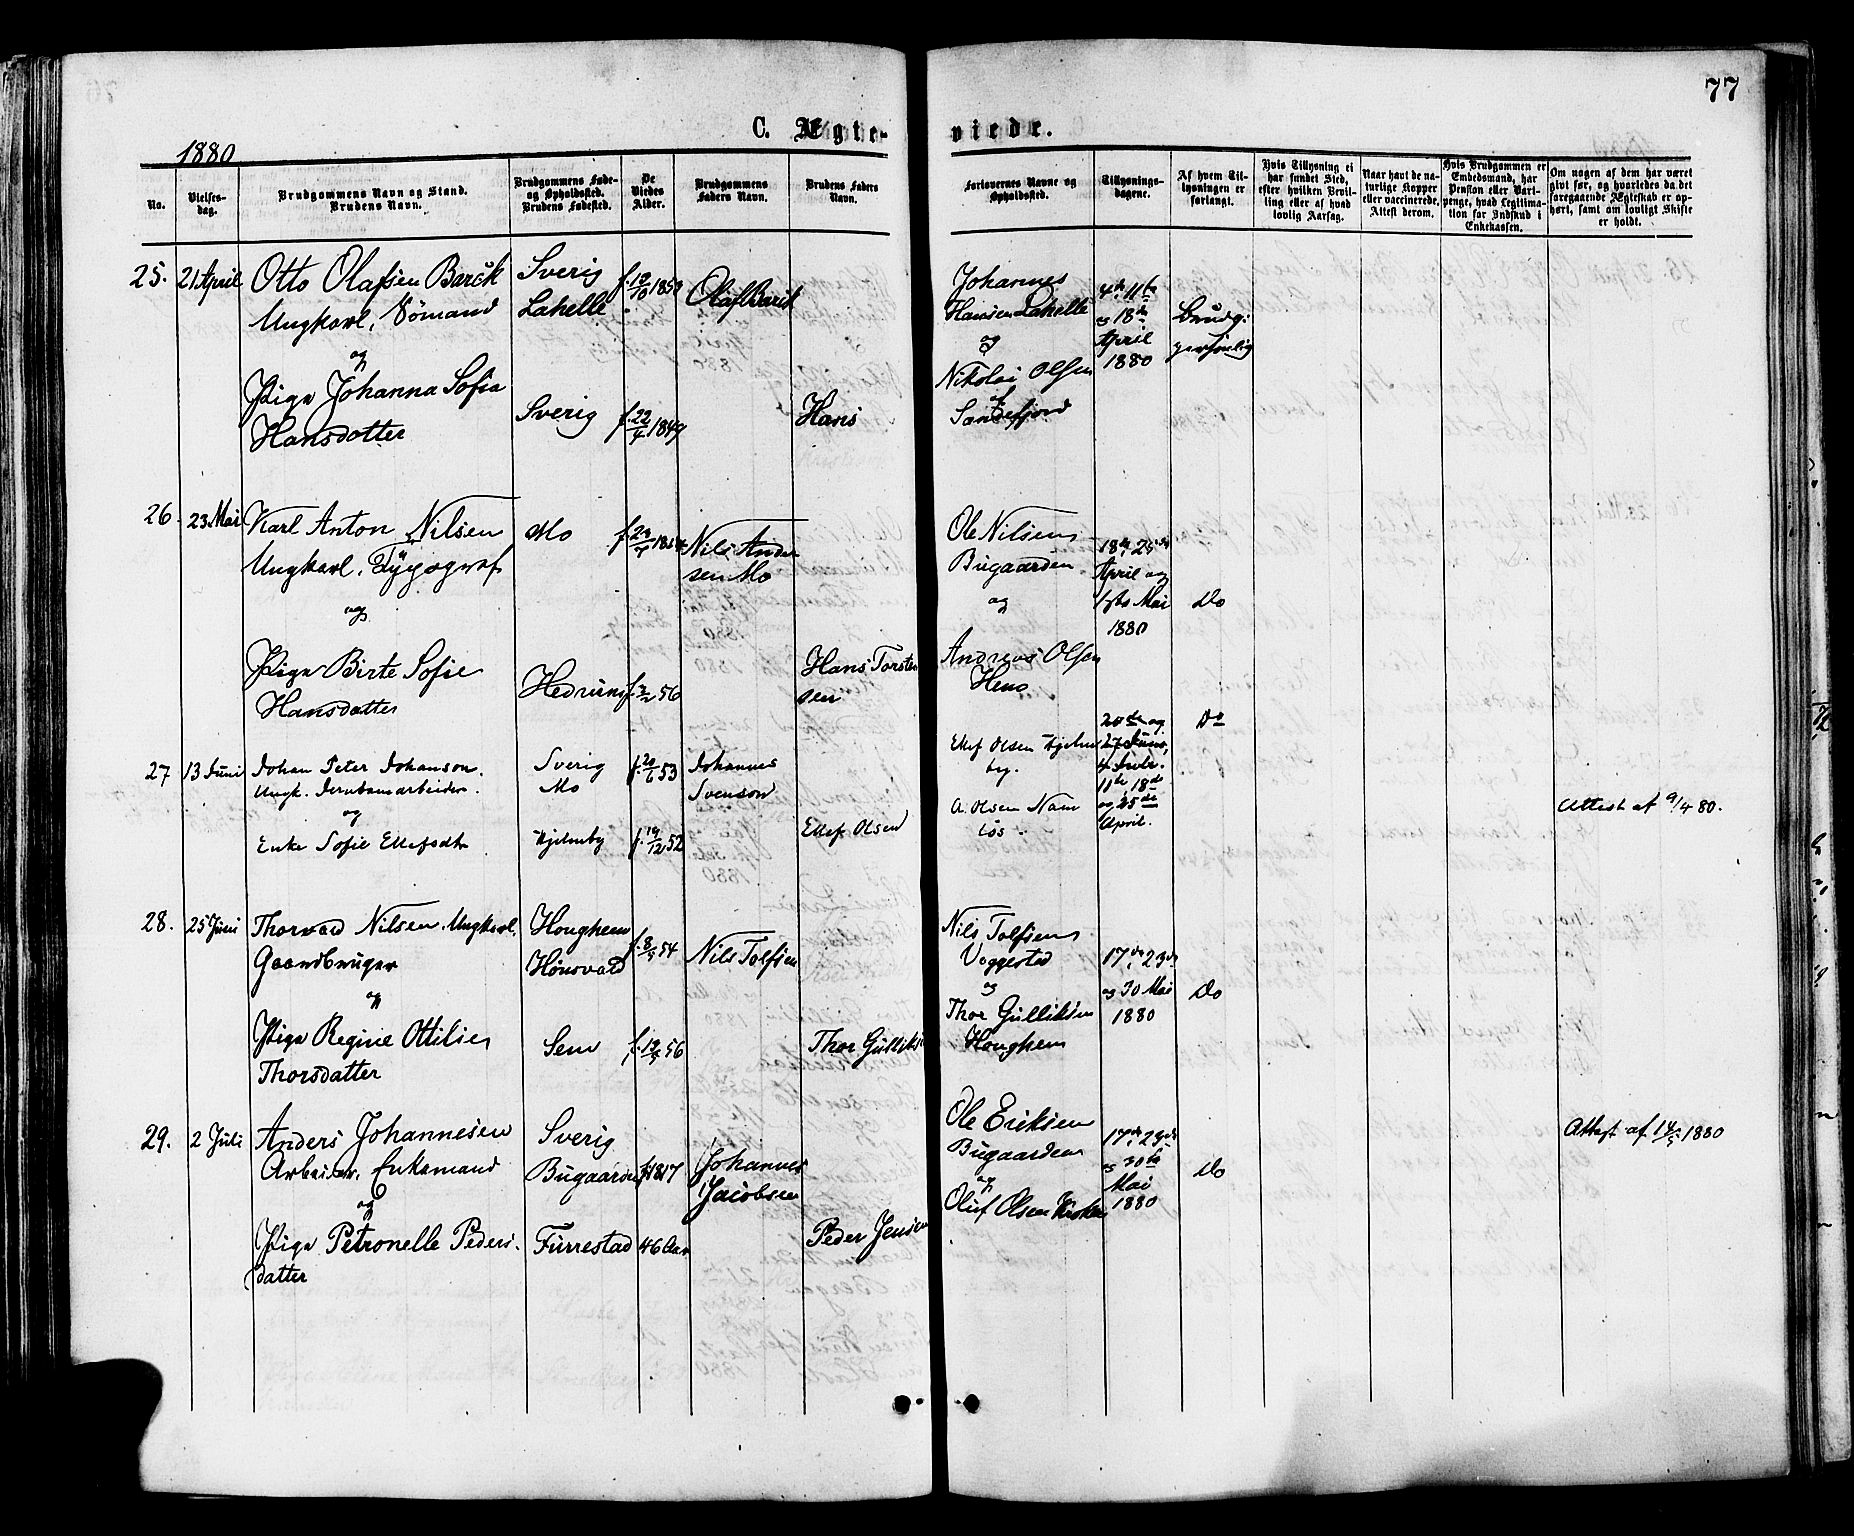 77
C. Ægte-
viede.
1880
No.
Vielses-
dag.
Brudgommens Navn og Stand.
Brudens Navn.
Brudgommens Føde-
og Opholdssted.
Brudens Fødested.
De
Viedes
Alder.
Brudgommens
Faders Navn.
Brudens Faders
Navn.
Forlovernes Navne og
Opholdssted.
Tillysnings-
dagene.
Af hvem Til-
lysningen er
forlangt.
Hvis Tillysning ei
har fundet Sted,
efter hvilken Bevil-
ling eller af hvad
lovlig Aarsag.
Naar havt de na-
turlige Kopper
eller vaccinerede.
Attest derom.
Hvis Brudgommen er
Embedsmand, har
Pension eller Vart-
penge, hvad Legitima-
tion for Indskud i
Enkekassen.
Om nogen af dem har været
givt før, og hvorledes da det
foregaaende Ægteskab er op-
hørt, samt om lovligt Skifte
er holdt.
25.
21 April
Otto Olafsen Barck
Ungkarl, Sømand
og
Pige Johanna Sofia
Hansdatter
Sverig
Lahelle
Sverig
f. 22/4 1849
Olaf Barck
Hans
Johannes
Hansen Lahelle
og
Nikolai Olsen
af
Sandefjord
4de, 11te
og 18de
April
1880
Brudg.
personlig
26.
23 Mai
Karl Anton Nilsen
Ungkarl, Typograf
og
Pige Birte Sofie
Hansdatter
Mo
Hedrum
Nils Ander
sen Mo
Hans Torsten
sen
Ole Nilsen
Bugaarden
og
Andreas Olsen
Hem
18de, 25de
April og
1ste Mai
1880
Do
27
13 Juni
Johan Peter Johanson.
Ungk. Jernbanearbeider.
og
Enke Sofie Ellefsdtr
Sverig
Mo
Hjelmby
f. 20/6 53
f. 19/12 52
Johannes
Svenson
Ellef Olsen
Ellef Olsen Hjelm
by.
A. Olsen Nam
løs
20de og
27 Juni,
4 Juli.
11te, 18de
og 25de
April.
Do
Attest af 9/4 80.
28.
25 Juni
Thorvald Nilsen, Ungkarl.
Gaardbruger
og
Pige Regine Ottilie
Thorsdatter
Houghem
Hönsvald
Sem
Nils Tolfsen
Thor Gulliks
Nils Tolfsen
Veggestad
og
Thor Gulliksen
Houghem
17de, 23de
og 30 Mai
1880
Do
29.
2 Juli
Anders Johannesen
Arbeider, Enkemand
og
Pige Petronelle Peders-
datter
Sverig
Bugaarden
Furrestad
f. 1817
46 Aar
Johannes
Jacobsen
Peder Jensen
Ole Eriksen
Bugaarden
og
Oluf Olsen
17de, 23de
og 30te
Mai
1880
Do